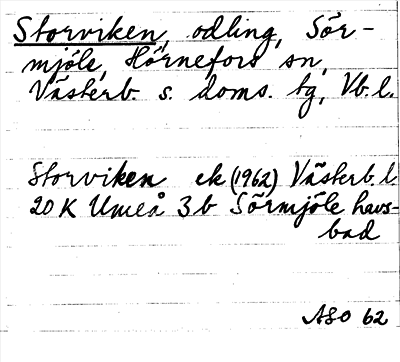 Storviken, odling, Sör-
mjöle, Hörnefors sn,
Västerb. s. doms. tg, Vb. l.
Storviken ek (1962) Västerb. l.
20 K Umeå 3b Sörmjöle havs-
bad
ASO 62